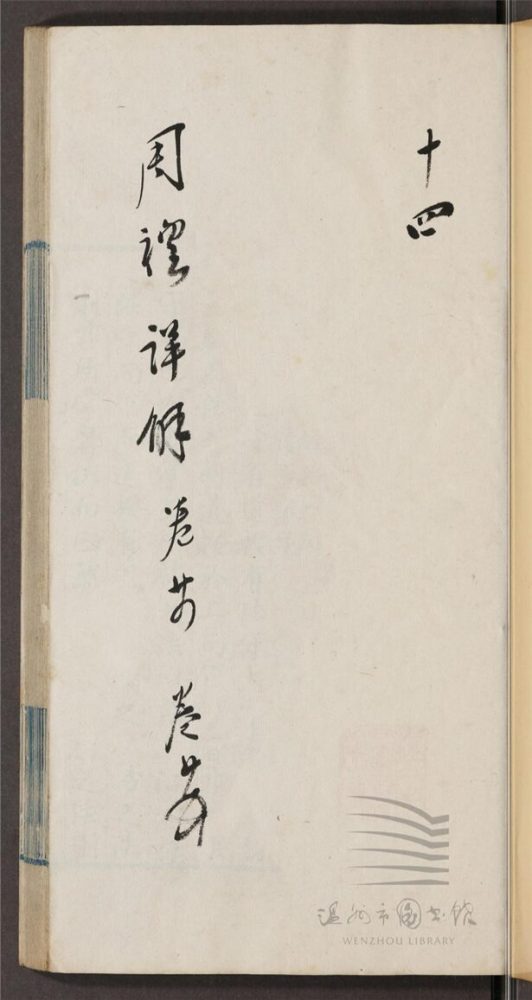 十四
周禮詳解 卷廿 卷廿
温州市图书馆
WENZHOU LIBRARY